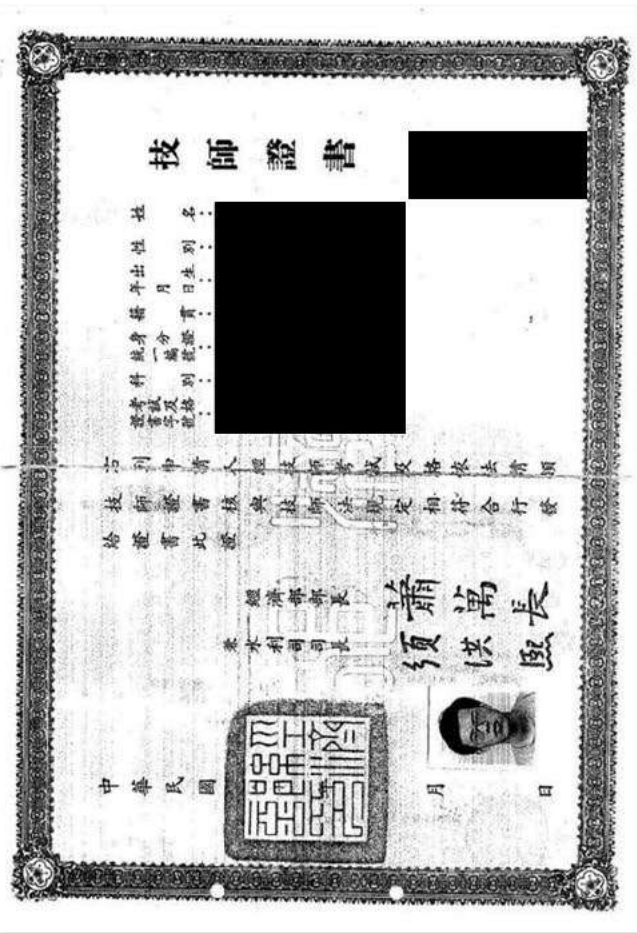 技師證書
姓名：
性別：
出生年月日：
籍貫：
身分證統一編號：
科別：
考試及格證書字號：
右列申請人經技師考試及格依法請領
技師證書核與技師法規定相符合行發
給證書此證
經濟部部長 蕭萬長
兼水利司司長 須洪熙
中華民國 月 日